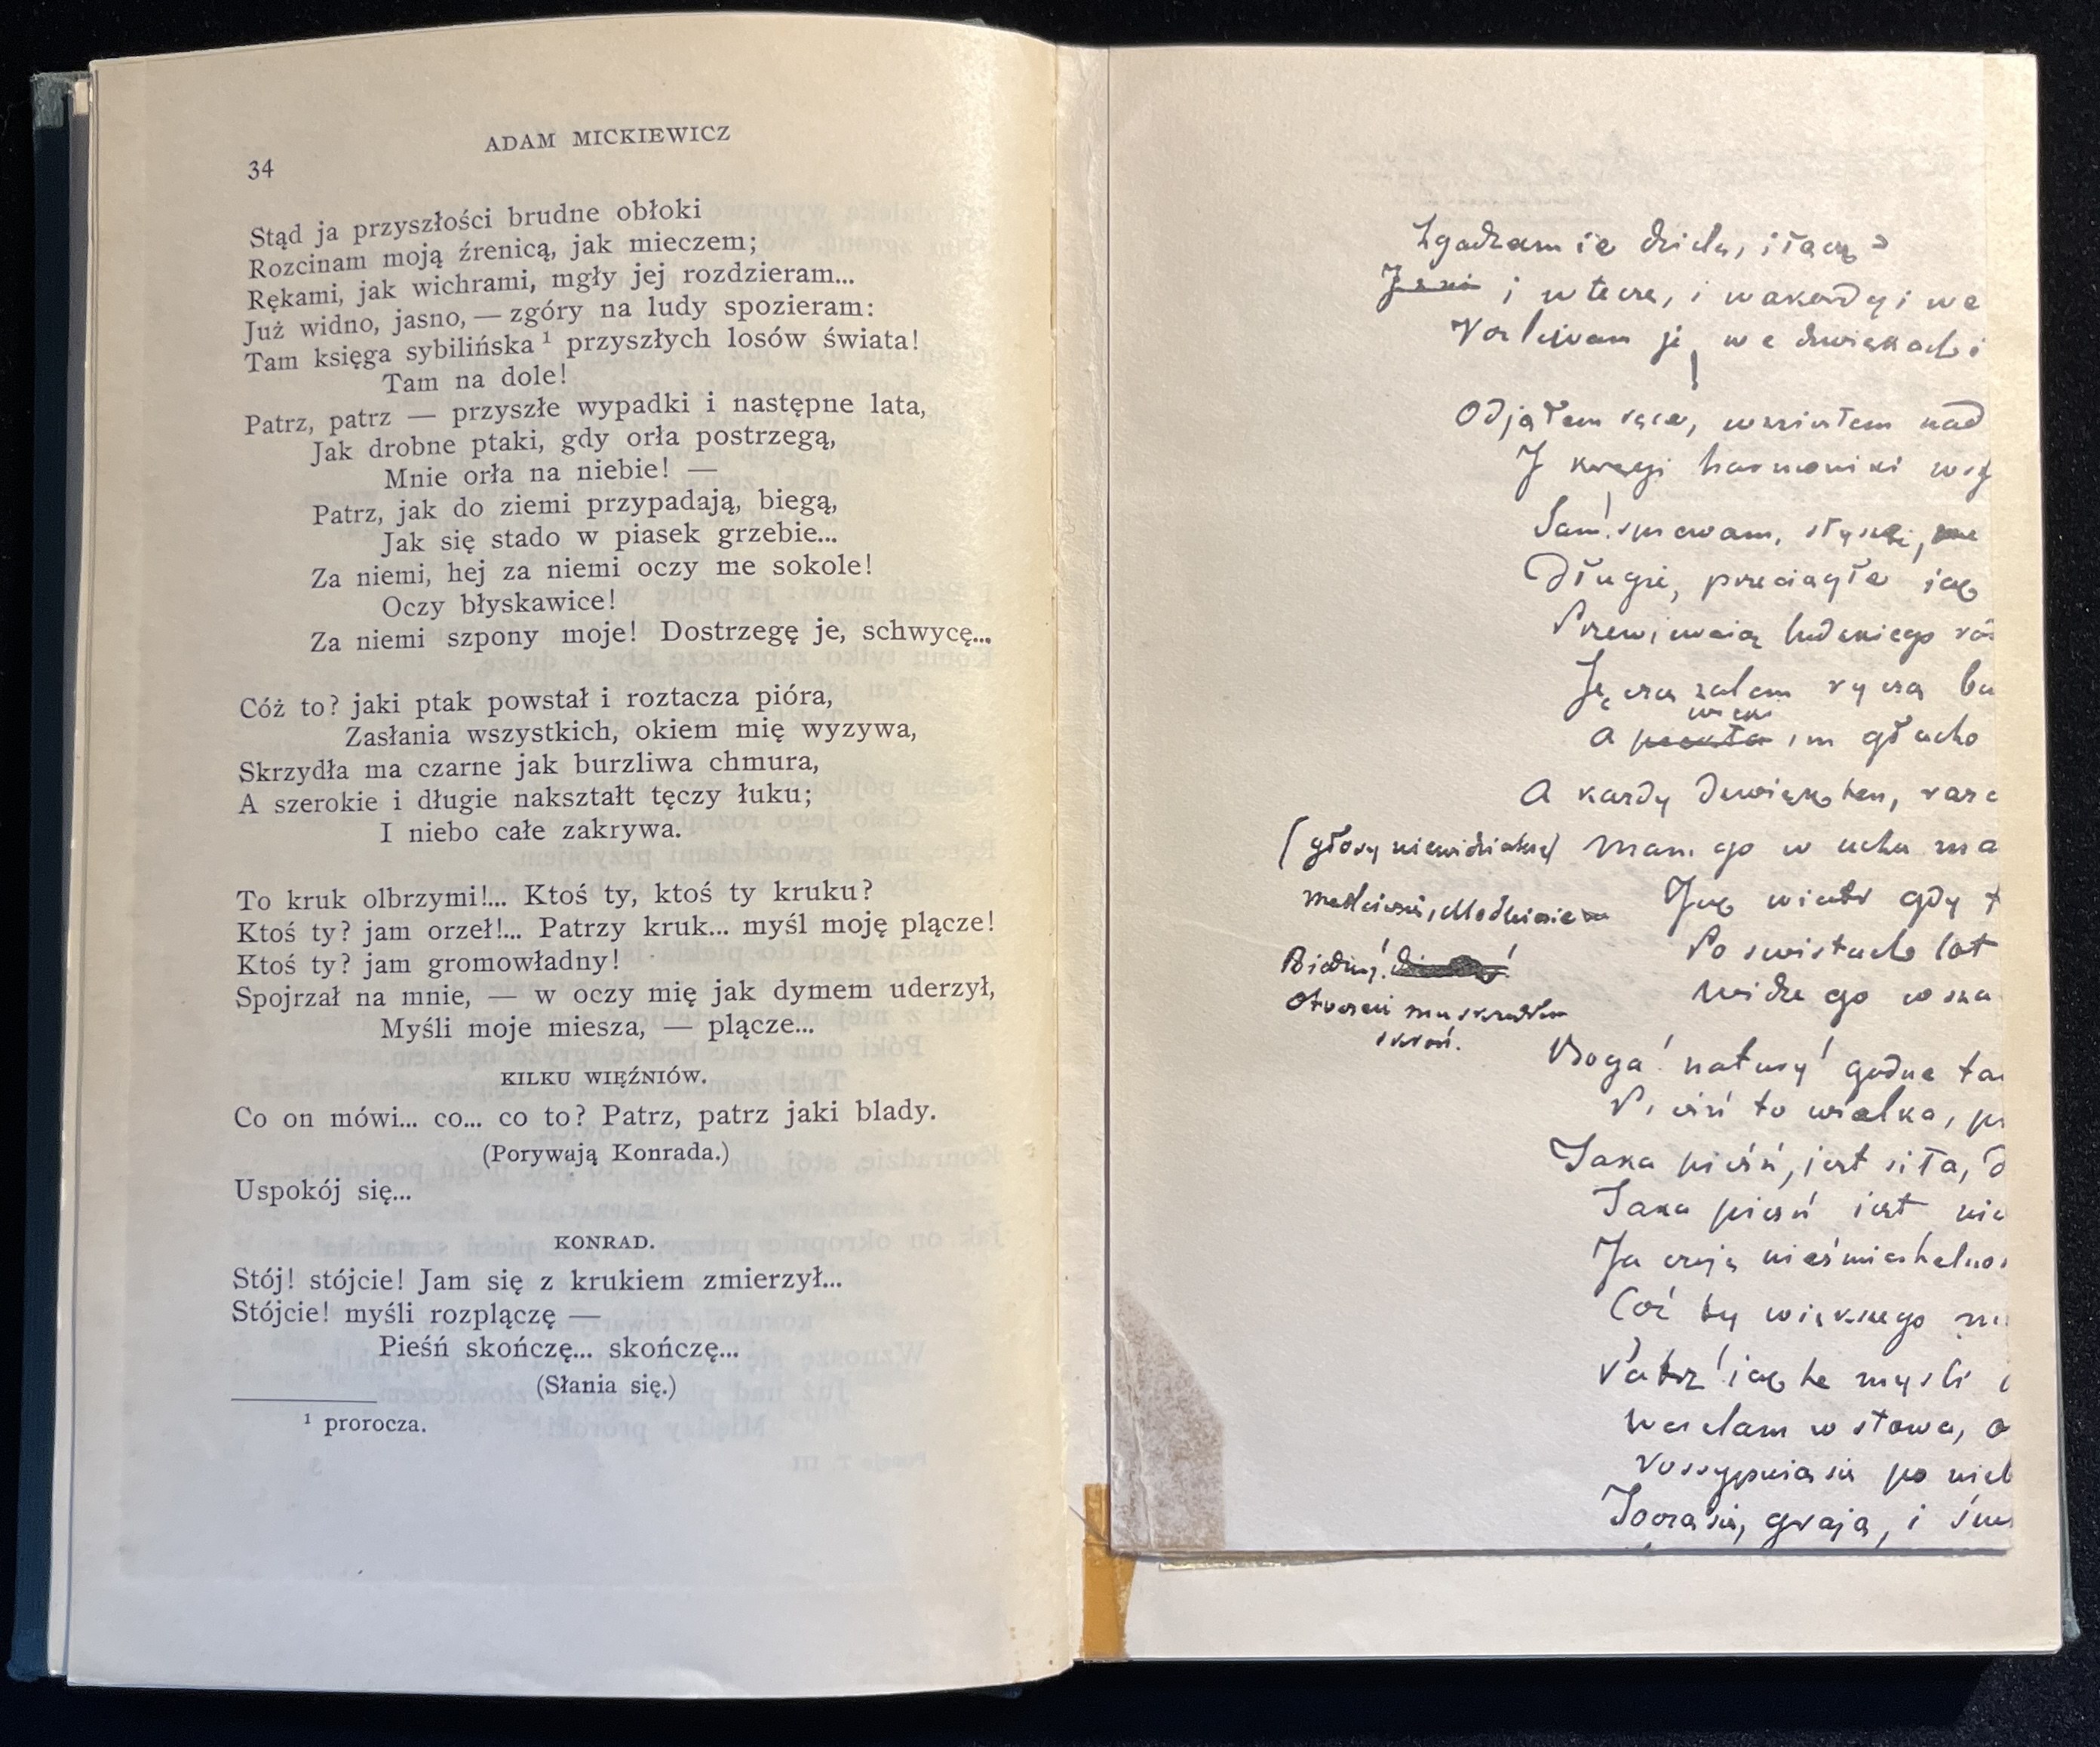 34
ADAM MICKIEWICZ
Stąd ja przyszłości brudne obłoki
Rozcinam moją źrenicą, jak mieczem;
Rękami, jak wichrami, mgły jej rozdzieram...
Już widno, jasno, — zgóry na ludy spozieram:
Tam księga sybilińska¹ przyszłych losów świata!
Tam na dole!
Patrz, patrz — przyszłe wypadki i następne lata,
Jak drobne ptaki, gdy orła postrzegą,
Mnie orła na niebie! —
Patrz, jak do ziemi przypadają, biegą,
Jak się stado w piasek grzebie...
Za niemi, hej za niemi oczy me sokole!
Oczy błyskawice!
Za niemi szpony moje! Dostrzegę je, schwycę...
Cóż to? jaki ptak powstał i roztacza pióra,
Zasłania wszystkich, okiem mię wyzywa,
Skrzydła ma czarne jak burzliwa chmura,
A szerokie i długie nakształt tęczy łuku;
I niebo całe zakrywa.
To kruk olbrzymi!... Ktoś ty, ktoś ty kruku?
Ktoś ty? jam orzeł!... Patrzy kruk... myśl moję plącze!
Ktoś ty? jam gromowładny!
Spojrzał na mnie, — w oczy mię jak dymem uderzył,
Myśli moje miesza, — plącze...
KILKU WIĘŹNIÓW.
Co on mówi... co... co to? Patrz, patrz jaki blady.
(Porywają Konrada.)
Uspokój się...
KONRAD.
Stój! stójcie! Jam się z krukiem zmierzył...
Stójcie! myśli rozplączę —
Pieśń skończę... skończę...
(Słania się.)
¹ prorocza.
Zgadzam ie dzielę, i łączę
i w tęcze, i w akordy i we
Rozlewam je, we dzwiękach i
Odjąłem ręce, wzniosłem nad
I kręgi harmoniki ws
Sam! spiewam, słyszę,
Długie, przeciągłe iak
Przewiewaią ludzkiego ro
Ięczą żalem ryczą bu
wieki
A im głucho
A kazdy dzwięk ten, raze
(głosy niewidzialne) Mam go w uchu ma
Jak wiatr gdy
Po swistach lot
Widzę go w sza
Biedny!
Boga! natury! godne ta
Pieśń to wielka, p
Taka pieśń, jest siła, d
Taka pieśń iest nie
Ja czuję nieśmiertelnoś
Coż ty większego m
Patrz! iak te mysli
Wcielam w słowa, o
rossypuią się po nieb
Toczą się, graja, i św